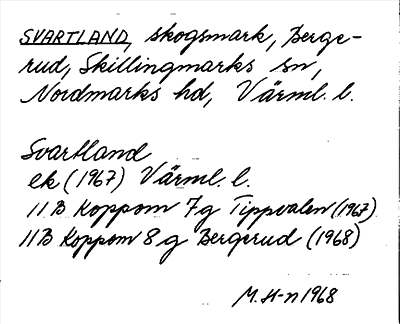 SVARTLAND, skogsmark, Berge-
rud, Skillingmarks sn,
Nordmarks hd, Värml. l.
Svartland
ek (1967) Värml. l.
11B Koppom 7g Tippvalen (1967)
11B Koppom 8g Bergerud (1968)
M. H-n 1968